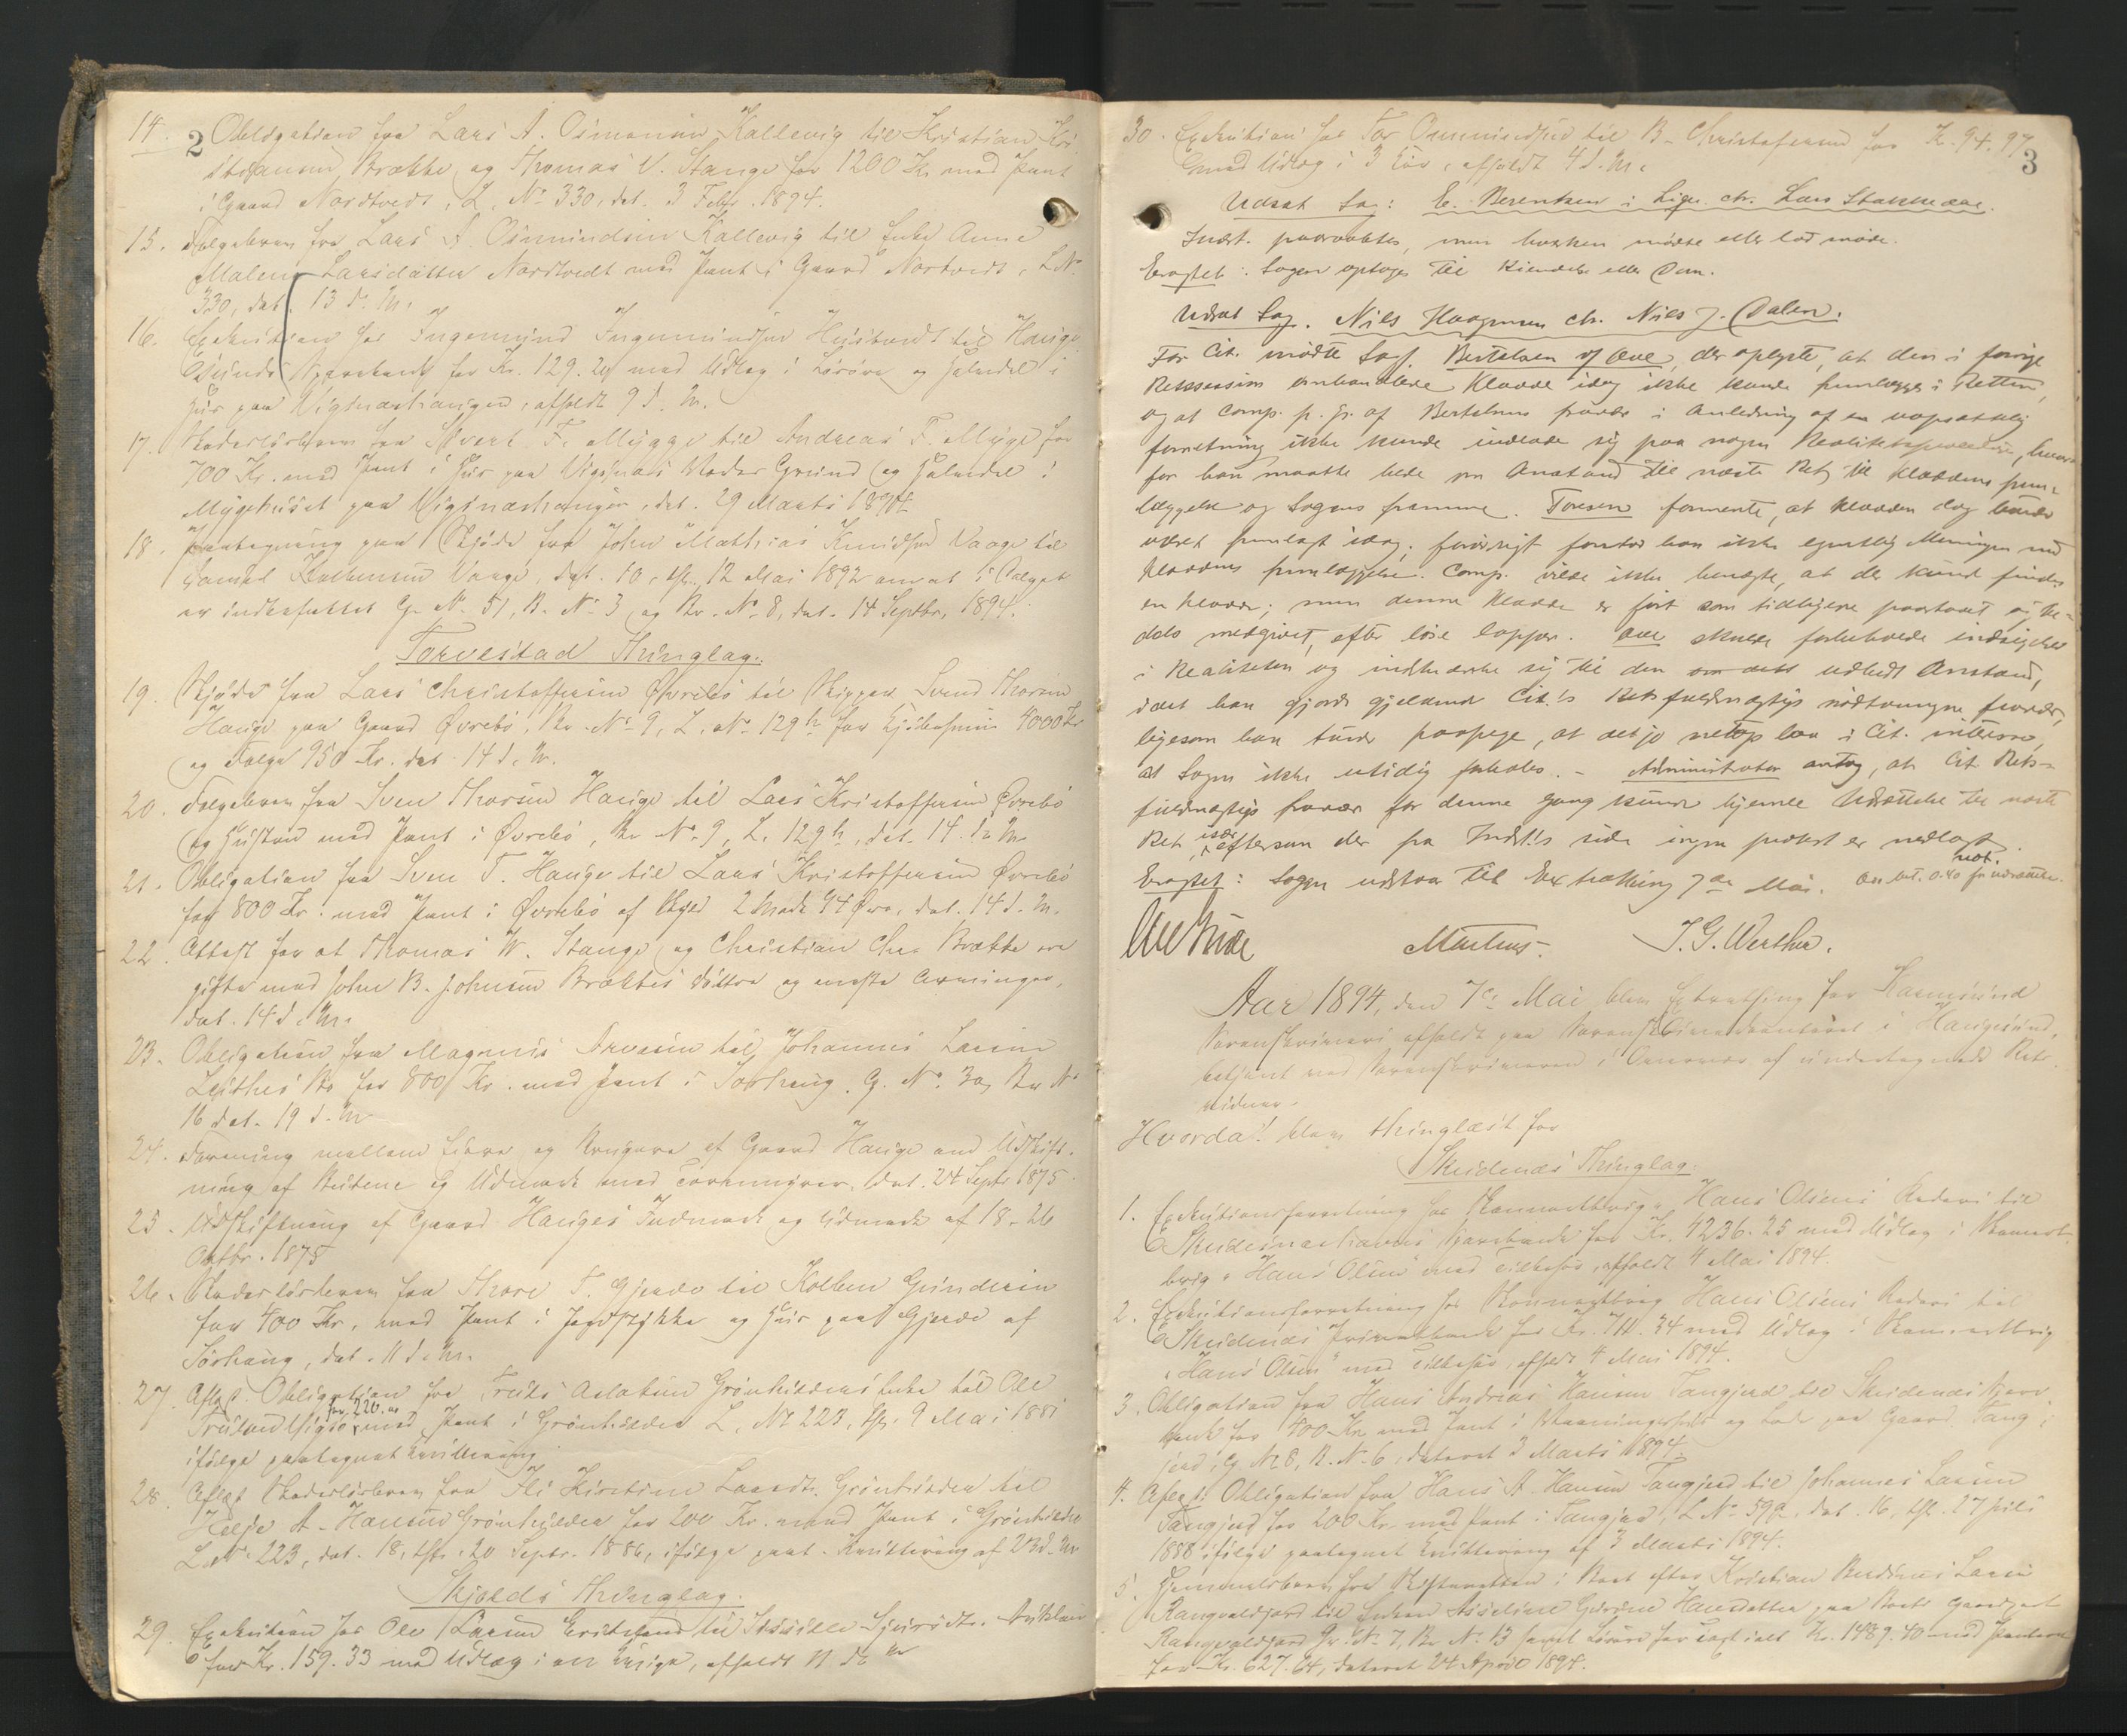 2
14. Obligation fra Lars A. Osmunsen Kallevig til Kristian Kri-
stiansen Brække og Thomas V. Stange for 1200 Kr. med Pant
i Gaard Nordtvedt, L. No 330, dat. 3 Febr. 1894.
15. Følgebrev fra Lars A. Osmundsen Kallevig til Enke Anne
Malene Larsdatter Nordtvedt med Pant i Gaard Nortvedt, L No
330, dat. 13 d. M.
16. Exekution hos Ingemund Ingemundsen Hustvedt til Hauge-
sunds Sparebank for Kr. 129.24 med Udlæg i Løsøre og Halvdel i
Hus paa Vigsnæshaugen, afholdt 9 d. M.
17. Skadesløsbrev fra Sivert F. Mygge til Andreas F. Myge for
700 Kr. med Pant i Hus paa Vigsnæs Grund og Halvdel i
Mygehuset paa Vigsnæshaugen, dat. 29 Marts 1894
18. Paategning paa Skjøde fra John Mathias Knudsen Vaage til
Samuel Vaage, dat. 10, thl. 12 Mai 1892 om at i Salget
er indbefattet G. No 51, B. No 3 og Br. No 8, dat. 14 Septbr. 1894.
Torvestad Thinglag:
19. Skjøde fra Lars Christoffersen Øvrebø til Skipper Svend Thorsen
Hauge paa Gaard Øvrebø, Br. No 9, L. No 129h for Kjøbesum 4000 Kr
og Følge 950 Kr. dat. 14 d. M.
20. Følgebrev fra Sven Thorsen Hauge til Lars Kristoffersen Øvrebø
og Hustru med Pant i Øvrebø, Br. No 9, L. 129h, dat. 14 d. M.
21. Obligation fra Sven T. Hauge til Lars Kristoffersen Øvrebø
for 800 Kr. med Pant i Øvrebø af Skyld 2 Mark 94 Øre, dat. 14 d. M.
22. Attest for at Thomas W. Stange og Christian Chr. Brække ere
gifte med John B. Johnsen Brækkes Døttre og eneste Arvinger,
dat. 14 d. M.
23. Obligation fra Magnus Arvesen til Johannes Larsen
for 800 Kr. med Pant i Sørhaug. G. No 30, Br. No
16 dat. 19 d. M.
24. Forening mellem Eiere og Brugere af Gaard Hauge om Udskift-
ning af og Udmark med dat. 24 Septr 1875.
25. Udskiftning af Gaard Hauges Indmark og Udmark af 18-26
Octbr. 1875
26. Skadesløsbrev fra Thore T. Gjerde til Kolben Gundersen
for 400 Kr. med Pant i Jordstykke og Hus paa Gjerde af
Sørhaug, dat. 11 d. M.
27. Aflæst Obligation fra Truls Aslaksen Grønhildens Enke til Ole
for 220. med Pant i Grønhilden L. No 223, thl. 9 Mai 1881
ifølge paategnet Kvittering
28. Aflæst Skadesløsbrev fra Kirstine Larsdtr. Grønhilden til
Helje A. Hansen Grønhilden for 200 Kr. med Pant i Grønhilden
L. No 223, dat. 18, thl. 20 Septr. 1886, ifølge paat. Kvittering af 23 d. M
Skjolds Thinglag.
29. Exekution hos Ole Larsen til
for Kr. 159.33 med Udlæg i en, afholdt 11 d. M
3
30. Exekution hos Tor Ommundsen til B. Christofersen for Kr. 94.97
med Udlæg i 3 Kør, afholdt 4 d. M.
Udsat Sag: E. Berentsen i Liqu. ctr. Lars Stakkedal.
Indst. paaraabtes, men hverken mødte eller lod møde.
Eragtet: Sagen optages til Kjendelse eller Dom.
Udsat Sag. Nils Haagensen ctr. Nils J. Dalen.
For Cit. mødte Sagf. Bertelsen of Aue, der oplyste, at den i forrige
Retssession omhandlede Kladde idag ikke kunde fremlægges i Retten,
og at Comp. p. gr. af Bertelsens fravær i Anledning af en uopsættelig
forretning ikke kunde indlade sig paa nogen Realitetsprocedure, hvor-
for han maatte bede om Anstand til næste Ret til Kladdens frem-
læggelse og Sagens fremme. Toresen formente, at Kladden dog burde
været fremlagt idag; forøvrigt forstod han ikke egentlig Meningen med
Kladdens fremlæggelse. Comp. vilde ikke benægte, at der kunde findes
en Kladde; men denne Kladde er ført som tidligere paastaaet og
dels medgivet, efter løse lapper. Aue skulde forbeholde indsigelser
i Realiteten og indskrænke sig til den udbedt Anstand,
idet han gjorde gjeldende Cit.'s Retsfuldmægtigs nødtvungne fravær,
ligesom han turde paapege, at det jo netop laa i Cit. interesse,
at Sagen ikke utidig forhales. – Administrator antog, at Cit. Rets-
fuldmægtigs fravær for denne gang kunde hjemle Udsættelse til næste
Ret, især eftersom der fra Indst.'s side ingen protest er nedlagt.
Eragtet: Sagen udstaar til Extrathing 7de Mai. not.
Martens. J. G. Werther.
Aar 1894, den 7de Mai blev Extrathing for Karmsund
Sorenskriveri afholdt paa Sorenskriverkontoret i Haugesund,
betjent ved Sorenskriveren i Overvær af undertegnede Rets-
vidner.
Hvorda: blev thinglæst for
Skudenæs Thinglag:
1. Exekutionsforretning hos Skonnertbrig „Hans Olsens“ Rederi til
Skudesnæshavns Sparebank for Kr. 4236.25 med Udlæg i Skonnert-
brig „Hans Olsen“ med Tilbehør, afholdt 4 Mai 1894.
2. Exekutionsforretning hos Skonnertbrig Hans Olsens Rederi til
Skudenæs Privatbank for Kr. 711.34 med Udlæg i Skonnertbrig
„Hans Olsen“ med Tilbehør, afholdt 4 Mai 1894.
3. Obligation fra Hans Andreas Hansen Tangjerd til Skudenæs Spare-
bank for 400 Kr. med Pant i Vaaningshus og Lade paa Gaard Tang-
jerd, G. No 8, B. No 6, dateret 3 Marts 1894.
4. Aflæst: Obligation fra Hans A. Hansen Tangjerd til Johannes Larsen
Tangjerd for 200 Kr. med Pant i Tangjerd, L No 59a, dat. 16, thl. 27 Juli
1888 ifølge paategnet Kvittering af 3 Marts 1894.
5. Hjemmelsbrev fra Skifteretten i Boet efter Kristian Larsen
Rangvaldjord til Enken Asseline Hansdatter paa Boets Gaardpart
Rangvaldjord Gr. No 7, Br. No. 13 samt Løsøre for Taxt ialt Kr. 1489.40 med Panteret
for Kr. 627.64, dateret 24 April 1894.